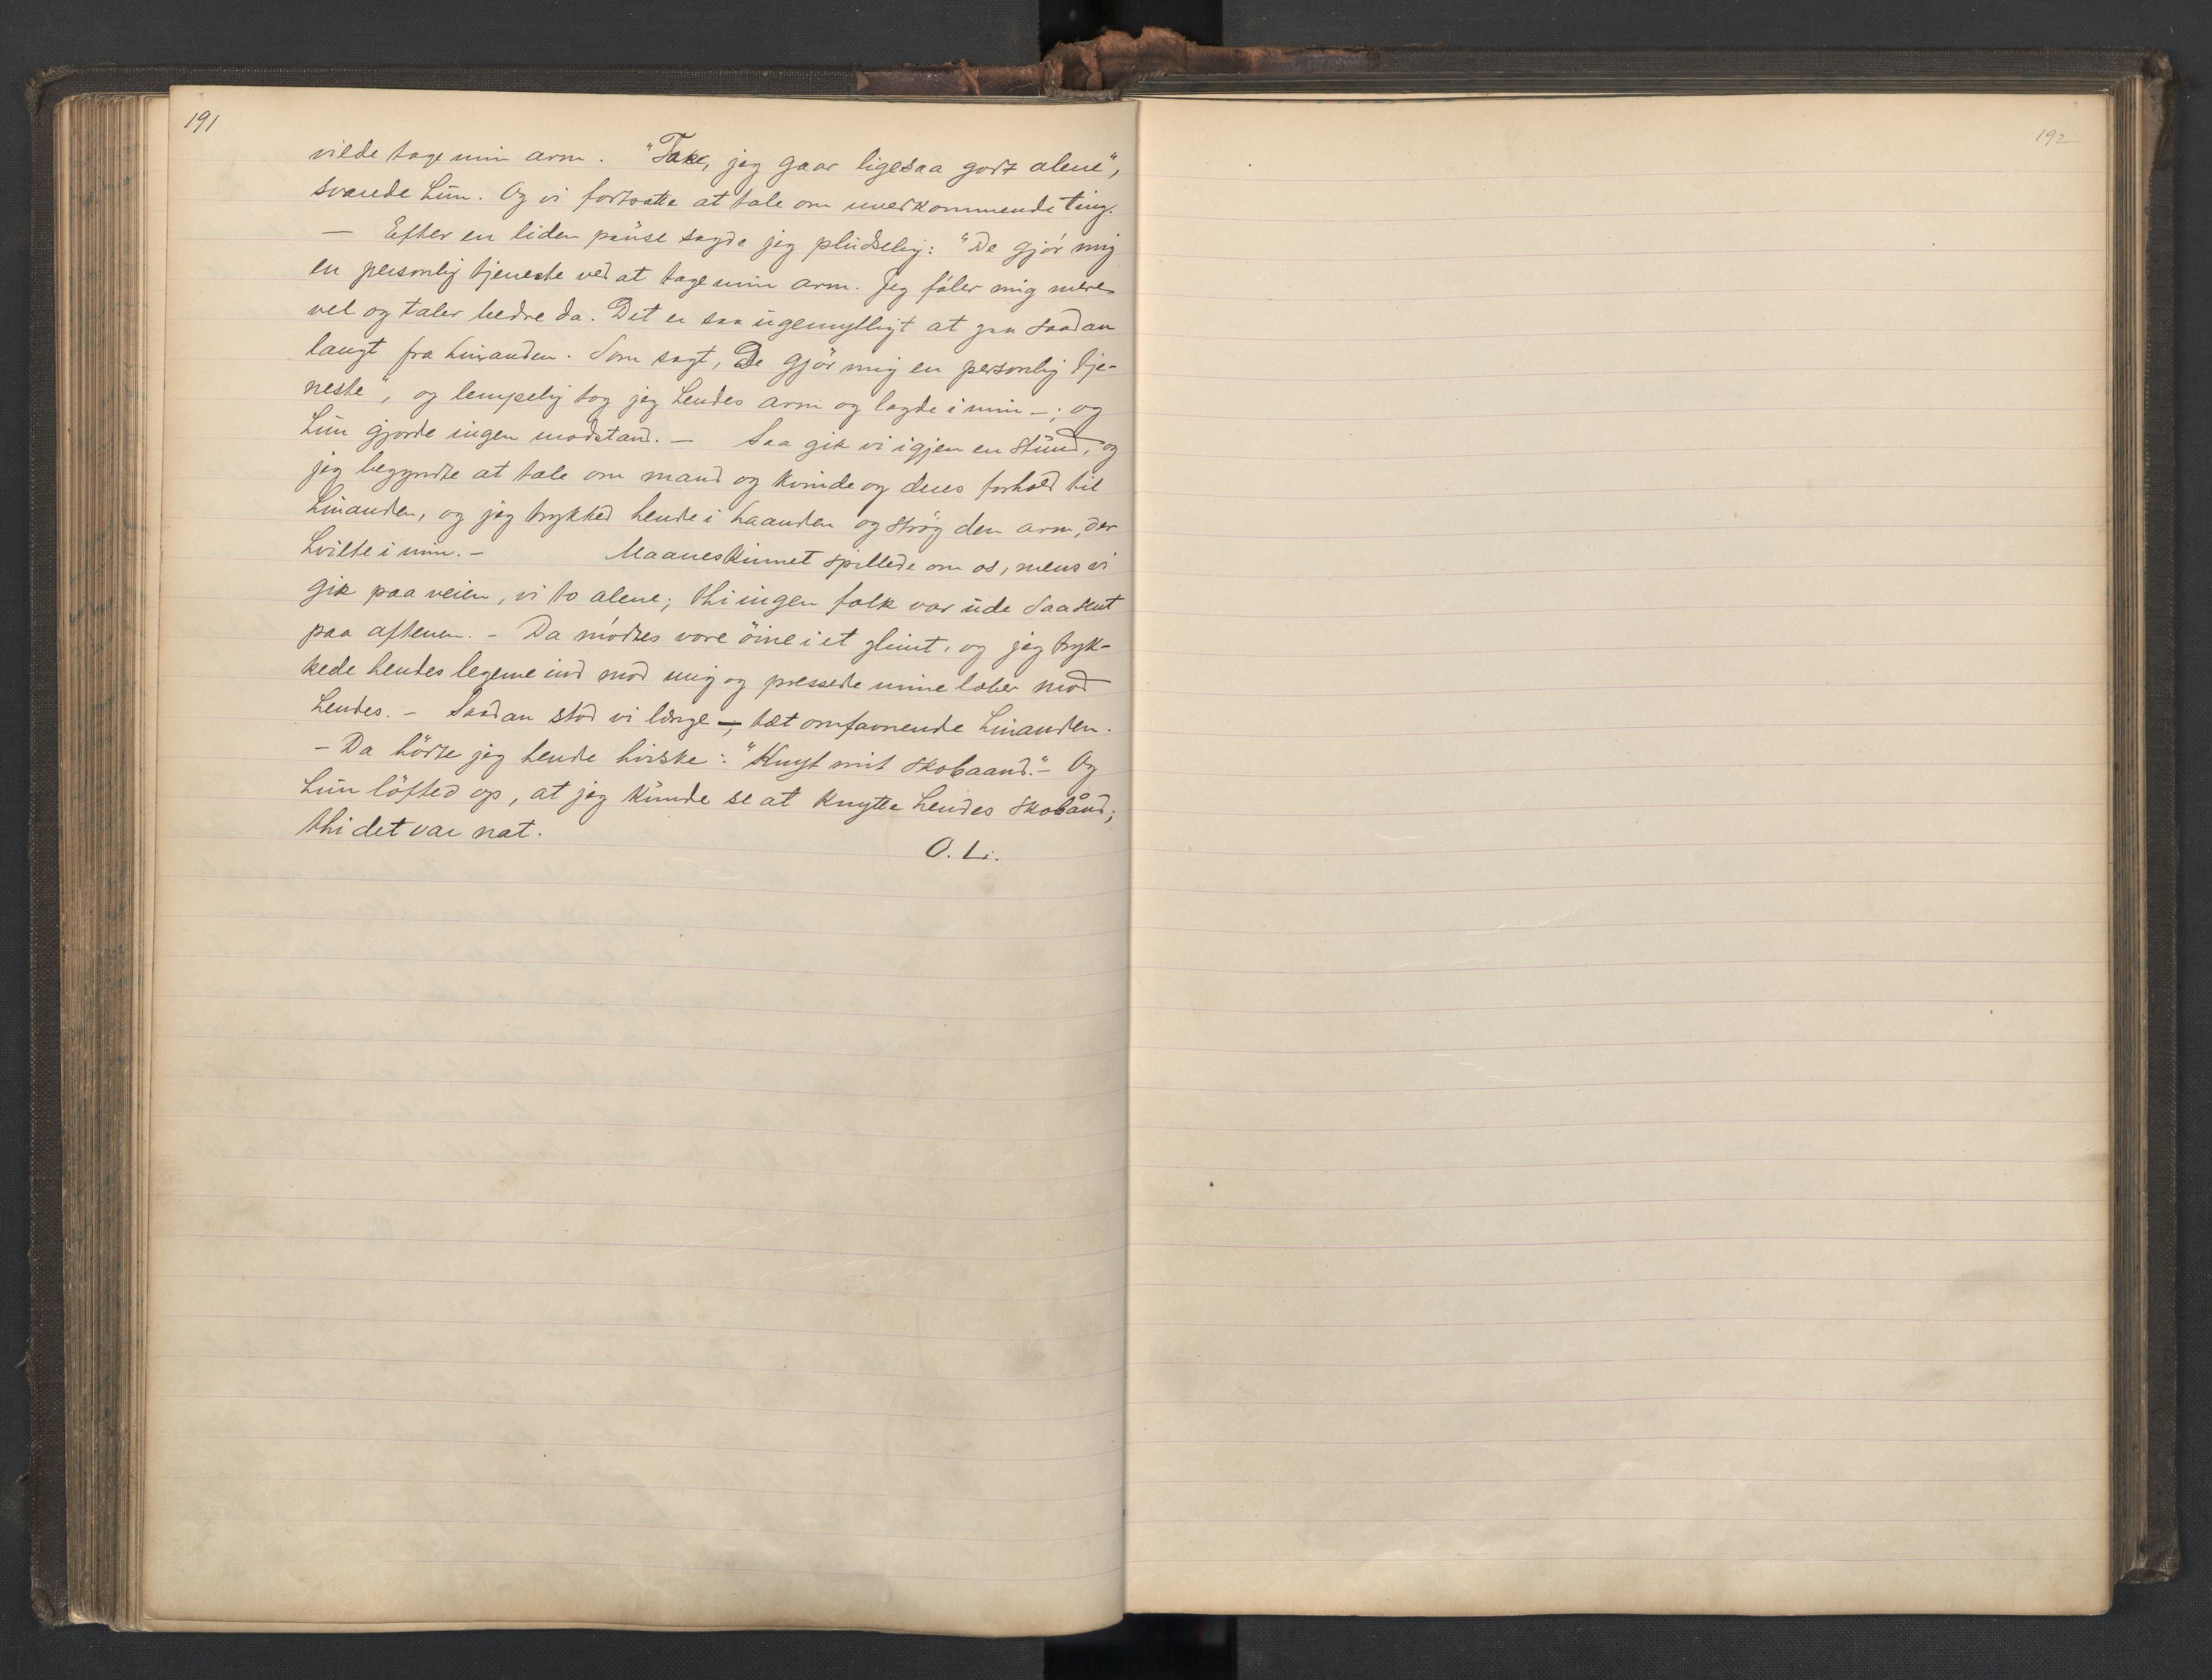 191
vilde tage min arm. "Takk, jeg gaar ligesaa godt alene",
svarede hun. Og vi fortsatte at tale om uvedkommende ting.
— Efter en liden pause sagde jeg pludselig: "De gjör mig
en personlig tjeneste ved at tage min arm. Jeg föler mig mere
vel og taler bedre da. Det er saa ugemytligt at gaa saadan
langt fra hinanden. Som sagt, De gjör mig en personlig tje-
neste", og lempelig tog jeg hendes arm og lagde i min –; og
hun gjorde ingen modstand. – Saa gik vi igjen en stund, og
jeg begyndte at tale om mand og kvinde og deres forhold til
hinanden, og jeg trykked hende i haanden og strög den arm, der
hvilte i min. – Maaneskinnet spillede om os, mens vi
gik paa veien, vi to alene; thi ingen folk var ude saa sent
paa aftenen. – Da mödtes vore öine i et glimt, og jeg tryk-
kede hendes legeme ind mod mig og pressede mine læber mod
hendes. – Saadan stod vi længe –, tæt omfavnende hinanden.
– Da hörte jeg hende hviske: "Knyt mit skobaand." – Og
hun löfted op, at jeg kunde se at knytte hendes skobånd;
thi det var nat.
O. Li.
192